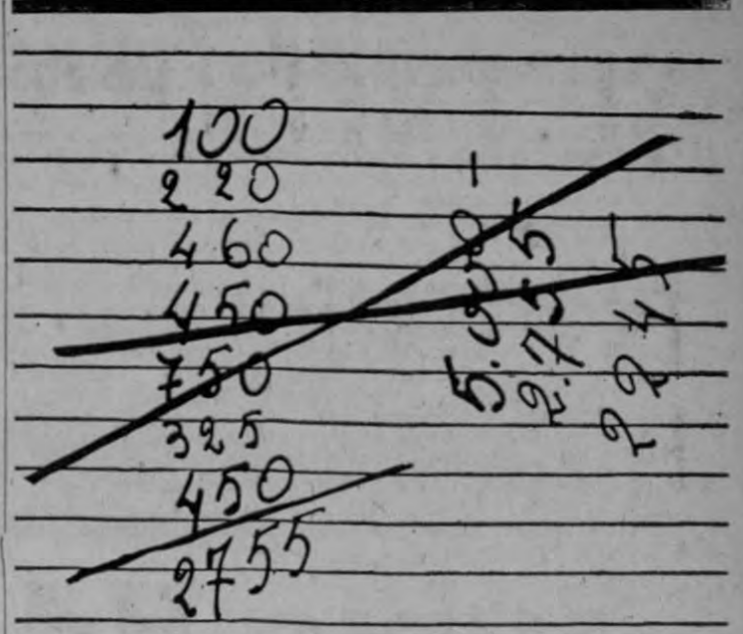 100
220
460
450
750
325
450
2755
5.000-
2.755
2245